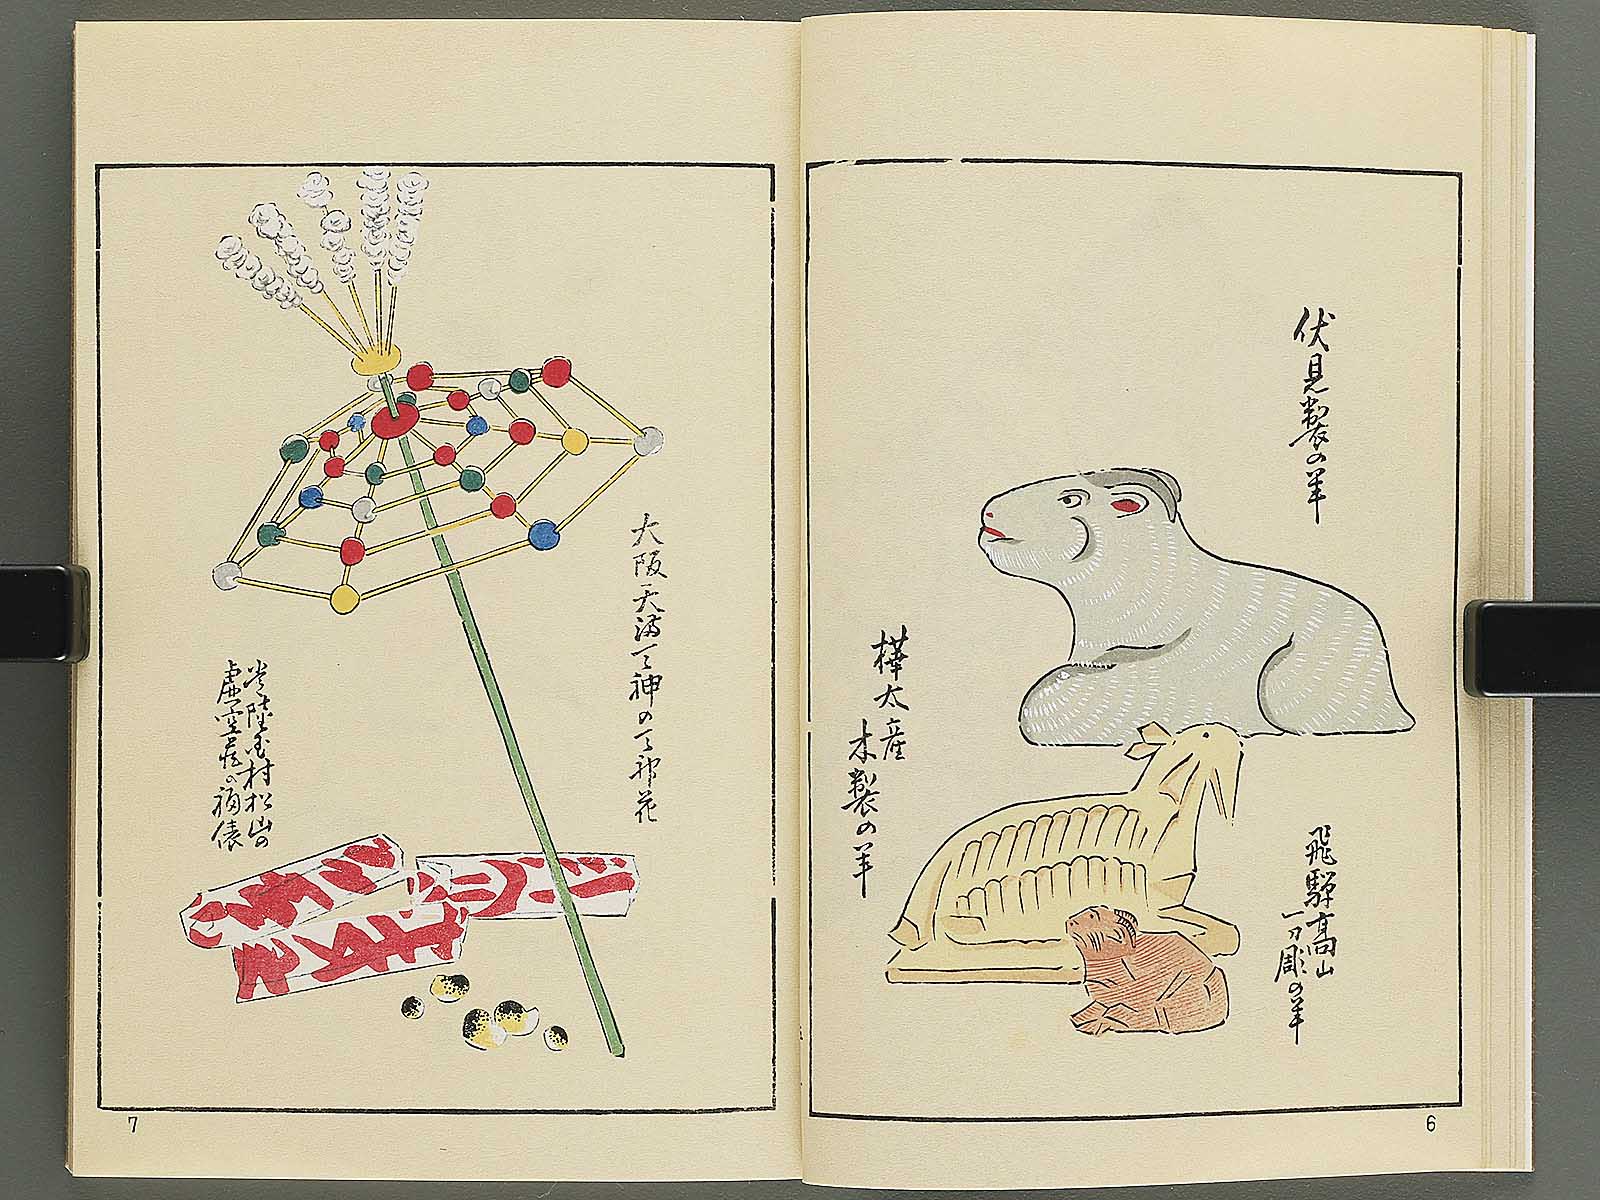 伏見製の羊
飛騨高山
一刀彫の羊
樺太産
木製の羊
6
大阪天満天神の天神花
常陸国村松山の
虚空蔵の福俵
7